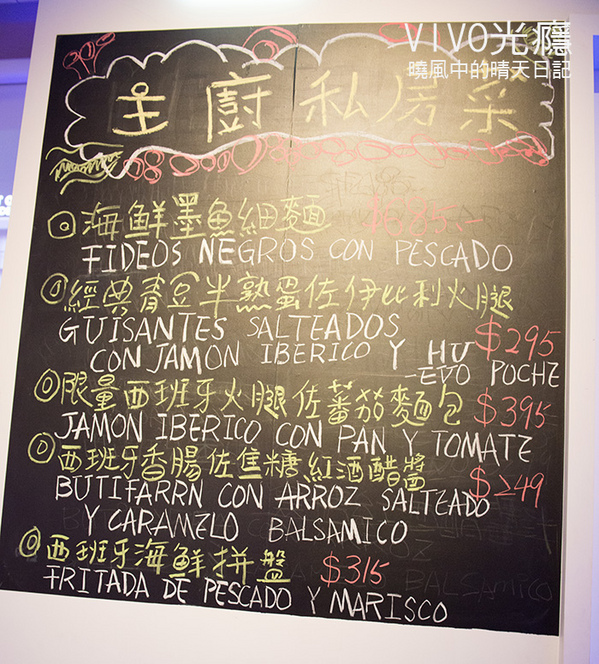 VIVO光癮
曉風中的晴天日記
主廚私房菜
海鮮墨魚細麵 $685.-
FIDEOS NEGROS CON PESCADO
經典青豆半熟蛋佐伊比利火腿
GUISANTES SALTEADOS
CON JAMON IBERICO Y HU
EVO POCHE
$295
限量西班牙火腿佐蕃茄麵包 $395
JAMON IBERICO CON PAN Y TOMATE
西班牙香腸佐焦糖紅酒醋醬 $249
BUTIFARRN CON ARROZ SALTEADO
Y CARAMELO BALSAMICO
西班牙海鮮拼盤 $315
FRITADA DE PESCADO Y MARISCO